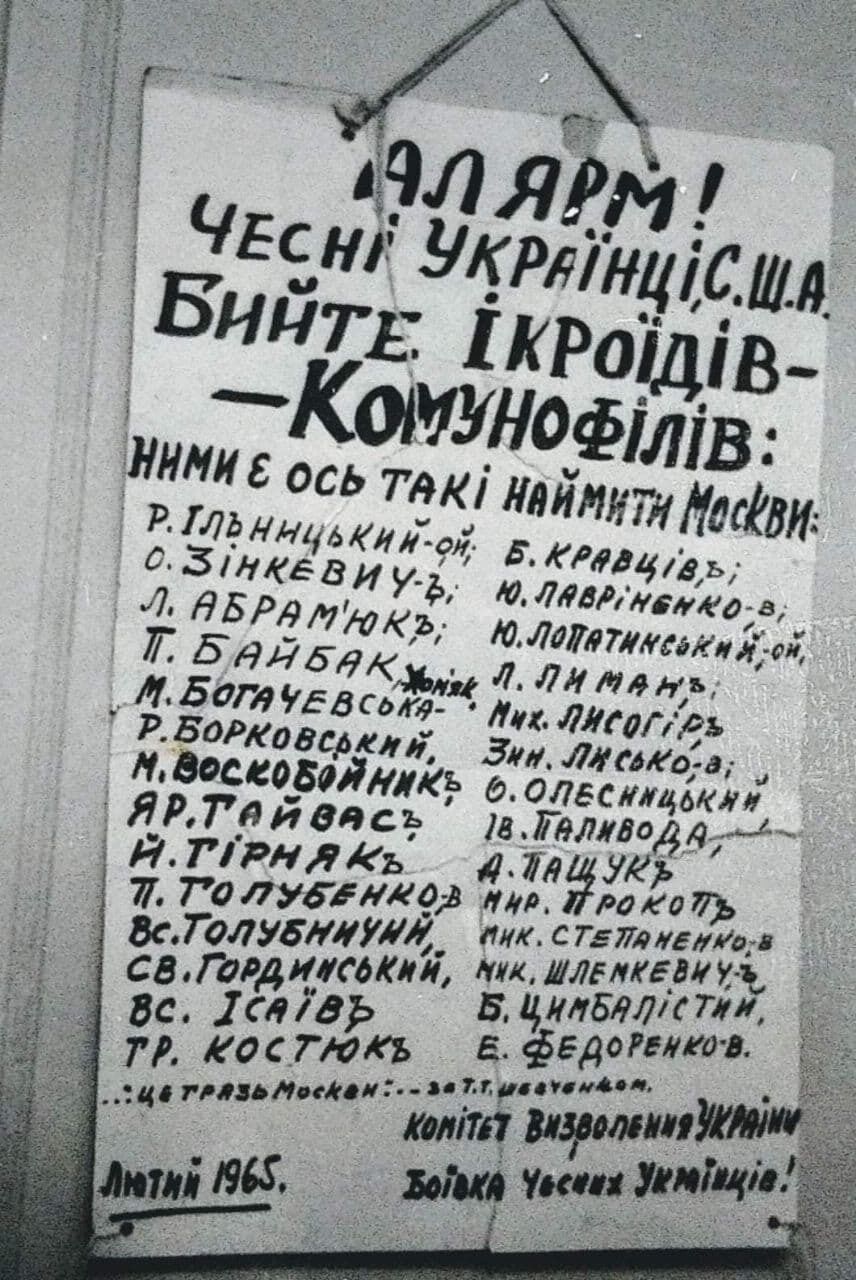 АЛЯРМ!
ЧЕСНІ УКРАЇНЦІ, С.Ш.А.
БИЙТЕ ІКРОЇДІВ-
-КОМУНОФІЛІВ:
НИМИ Є ОСЬ ТАКІ НАЙМИТИ МОСКВИ:
Р. ІЛЬНИЦЬКИЙ-ОЙ;
О. ЗІНКЕВИЧ-Ъ;
Л. АБРАМ'ЮКЪ;
П. БАЙБАК,
М. БОГАЧЕВСЬКА- Хомяк,
Р. БОРКОВСЬКИЙ,
М. ВОСКОБІЙНИКЪ
ЯР. ГАЙВАСЪ
Й. ГІРНЯКЪ
П. ГОЛУБЕНКО,В
ВС. ГОЛУБНИЧИЙ,
СВ. ГОРДИНСЬКИЙ,
ВС. ІСАЇВЪ
ГР. КОСТЮКЪ
Б. КРАВЦІВ,Ъ;
Ю. ЛАВРІНЕНКО-В;
Ю. ЛОПАТИНСЬКИЙ,-ОЙ,
Л. ЛИМАНЪ;
МИХ. ЛИСОГІРЪ
ЗИН. ЛИСЬКО,-В;
О. ОЛЕСНИЦЬКИЙ,
ІВ. ПАЛИВОДА,
А. ПАЩУКЪ
МИР. ПРОКОПЪ
МИК. СТЕПАНЕНКО,-В
МИК. ШЛЕМКЕВИЧ,Ъ
Б. ЦИМБАЛІСТИЙ,
Е. ФЕДОРЕНКО-В.
..:ЦЕ ГРЯЗЬ МОСКВИ:.- ЗА Т.Г. ШЕВЧЕНКОМ.
КОМІТЕТ ВИЗВОЛЕННЯ УКРАЇНИ
ЛЮТИЙ 1965.
БОЇВКА ЧЕСНИХ УКРАЇНЦІВ!